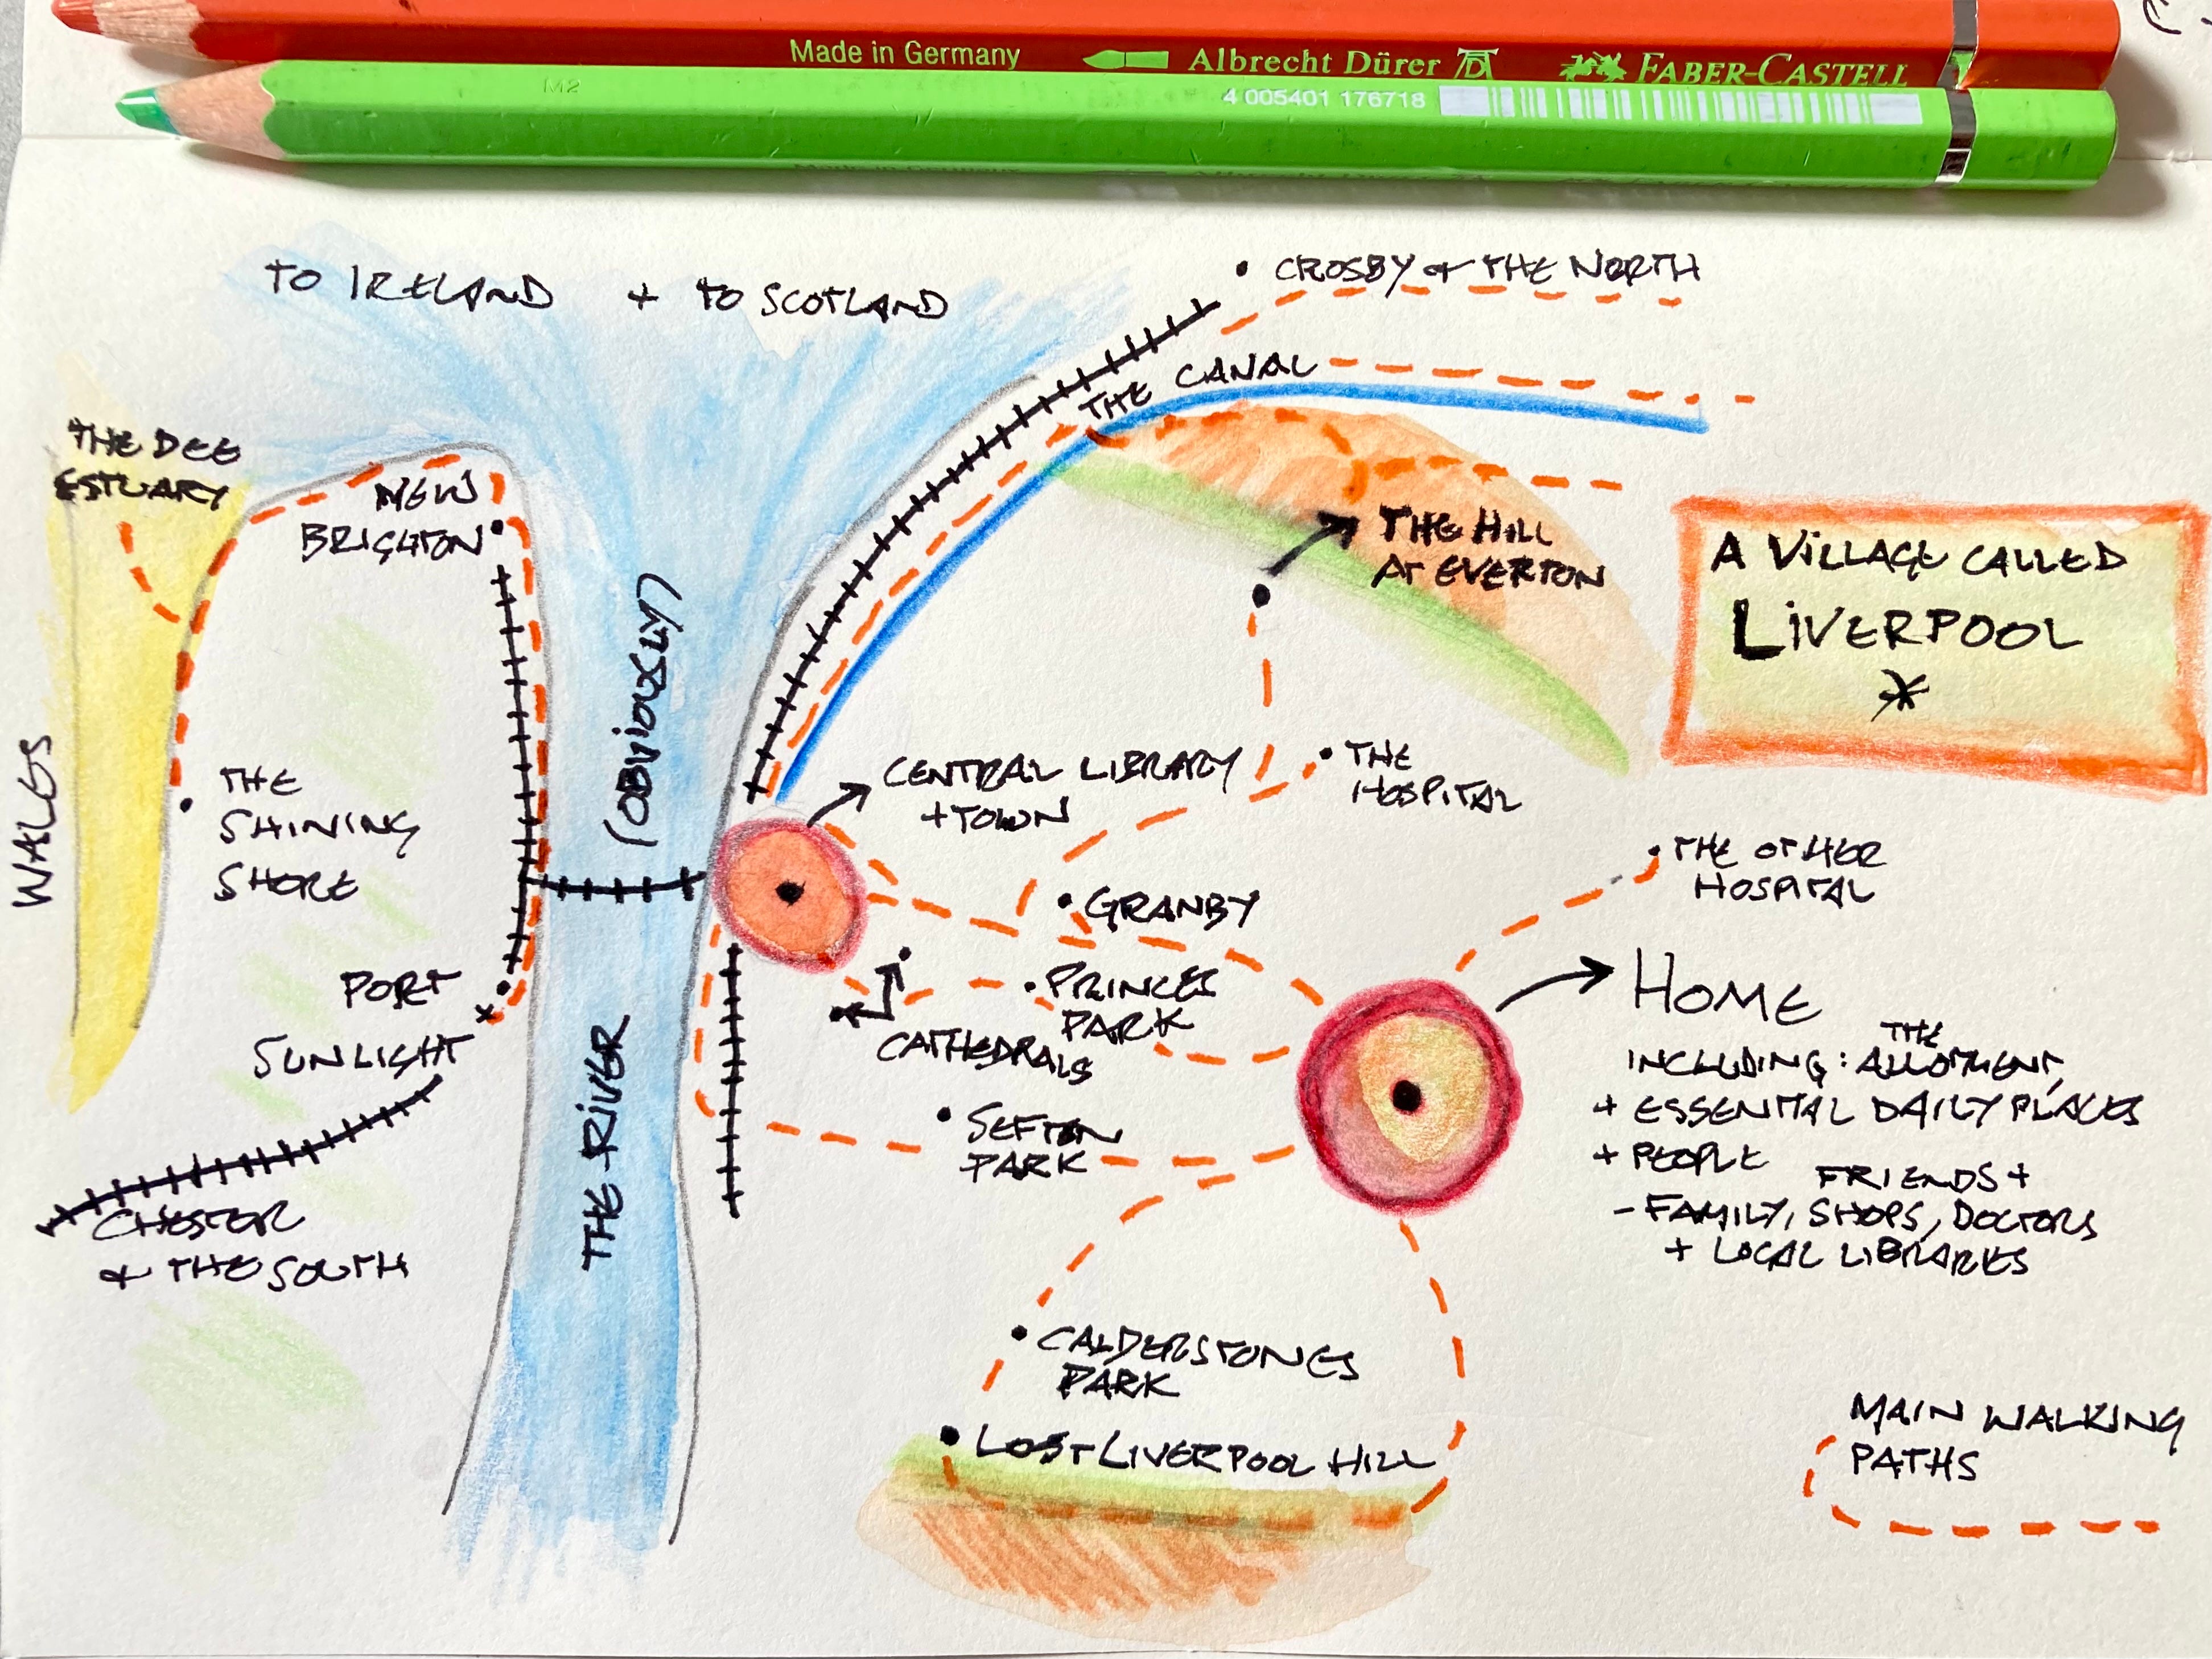 Made in Germany Albrecht Dürer FABER-CASTELL
M2
4 005401 176718
TO IRELAND + TO SCOTLAND
CROSBY & THE NORTH
THE CANAL
THE DEE
ESTUARY
NEW
BRIGHTON
THE HILL
AT EVERTON
A VILLAGE CALLED
LIVERPOOL
*
WALES
THE
SHINING
SHORE
THE RIVER (OBVIOUSLY)
CENTRAL LIBRARY
+ TOWN
THE
HOSPITAL
THE OTHER
HOSPITAL
GRANBY
PORT
SUNLIGHT
PRINCES
PARK
CATHEDRALS
HOME
INCLUDING: THE ALLOTMENT,
+ ESSENTIAL DAILY PLACES
+ PEOPLE FRIENDS +
- FAMILY, SHOPS, DOCTORS
+ LOCAL LIBRARIES
SEFTON
PARK
CHESTER
& THE SOUTH
CALDERSTONES
PARK
LOST LIVERPOOL HILL
MAIN WALKING
PATHS